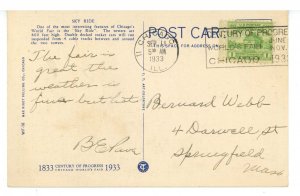 SKY RIDE
One of the most interesting features of Chicago's
World Fair is the "Sky Ride." The towers are 628
feet high. Double decked rocket cars will be
suspended from 4 cable tracks between and around
the two towers.
POST CARD
THIS SPACE FOR ADDRESS
CHICAGO
SEP 11
5 30 AM
1933
ILL.
CENTURY OF PROGRESS
JUNE
NOV.
1933
CHICAGO
The fair is
great the
weather is
fine but hot
Bernard Webb
4 Darwell St
Springfield
Mass
1833 CENTURY OF PROGRESS 1933
CHICAGO WORLD'S FAIR